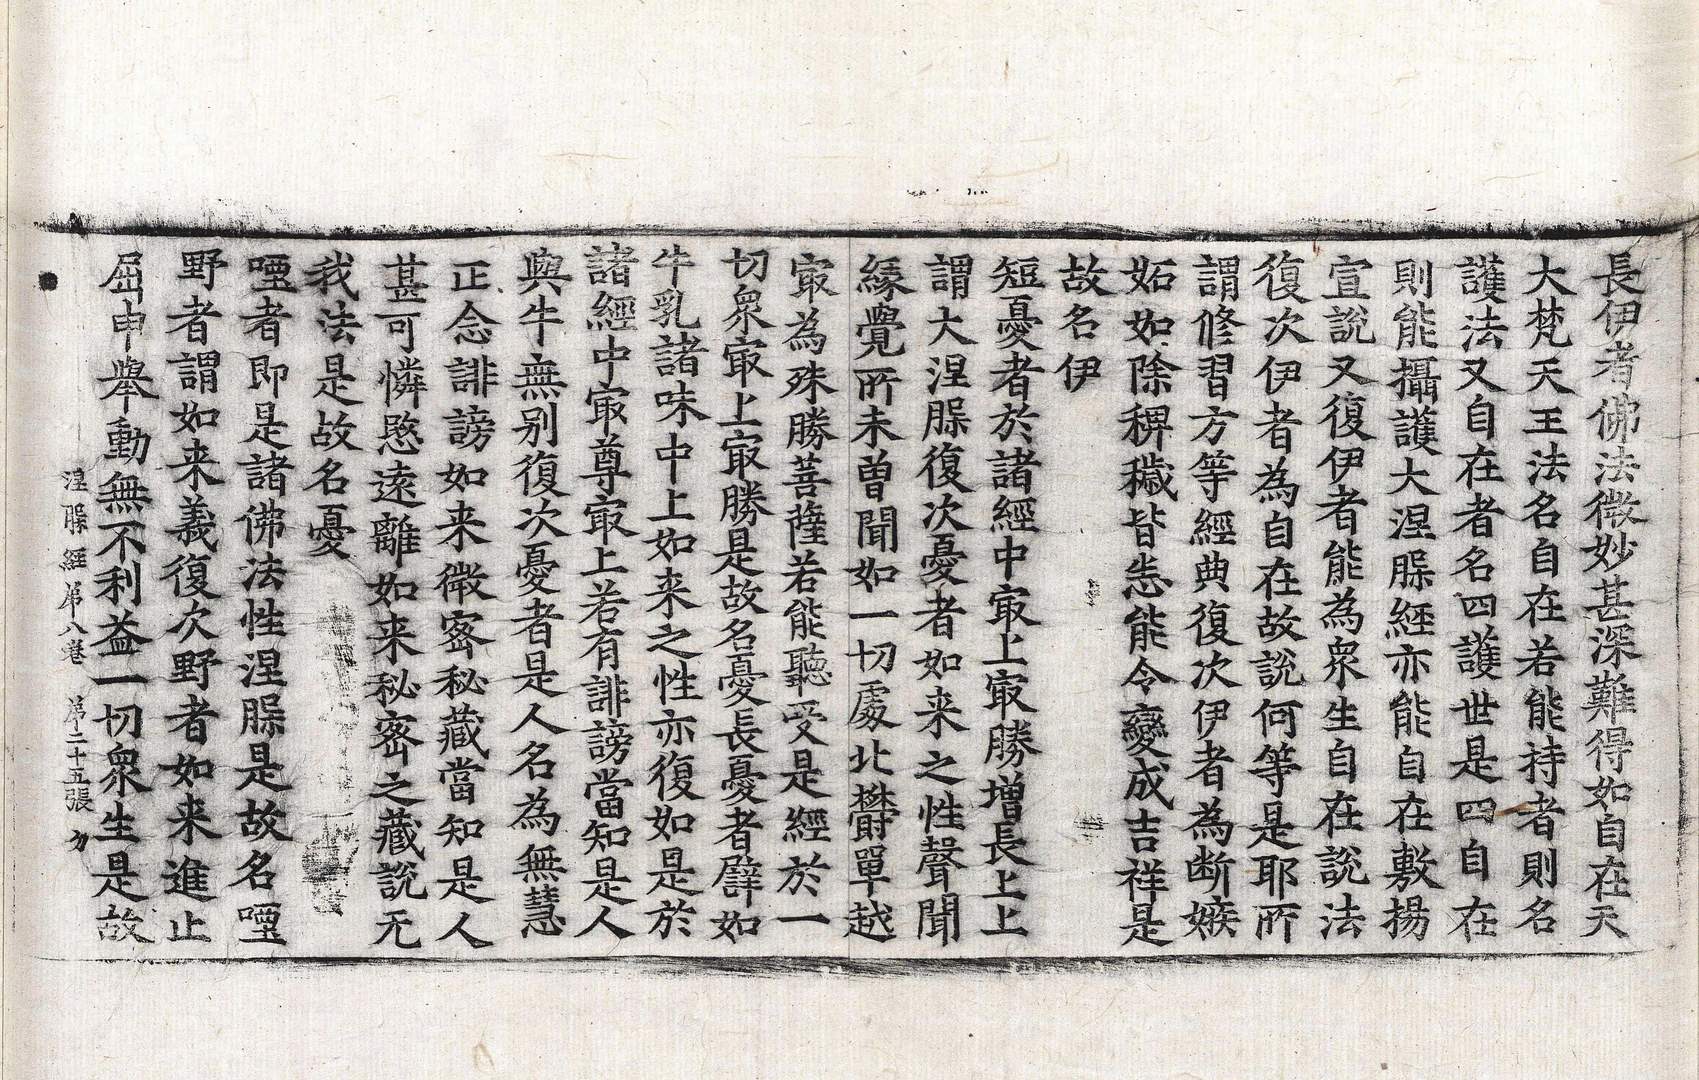 長伊者佛法微妙甚深難得如自在天
大梵天王法名自在若能持者則名
護法又自在者名四護世是四自在
則能攝護大涅槃經亦能自在敷揚
宣說又復伊者能為衆生自在說法
復次伊者為自在故說何等是耶所
謂修習方等經典復次伊者為断嫉
妬如除稗穢皆悉能令變成吉祥是
故名伊
短憂者於諸經中㝡上㝡勝增長上上
謂大涅槃復次憂者如来之性聲聞
緣覺所未曾聞如一切處北欝單越
㝡為殊勝菩薩若能聽受是經於一
切衆㝡上㝡勝是故名憂長憂者譬如
牛乳諸味中上如来之性亦復如是於
諸經中㝡尊㝡上若有誹謗當知是人
與牛無别復次憂者是人名為無慧
正念誹謗如来微密秘藏當知是人
甚可憐愍遠離如来秘密之藏說无
我法是故名憂
㖶者即是諸佛法性涅槃是故名㖶
野者謂如来義復次野者如来進止
屈申舉動無不利益一切衆生是故
涅槃經第八卷 第二十五張 方